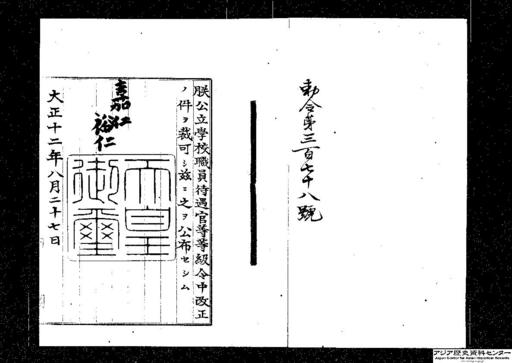 勅令第三百七十八號
朕公立學校職員待遇官等等級令中改正
ノ件ヲ裁可シ茲ニ之ヲ公布セシム
嘉仁
裕仁
天皇御璽
大正十二年八月二十七日
アジア歴史資料センター
Japan Center for Asian Historical Records